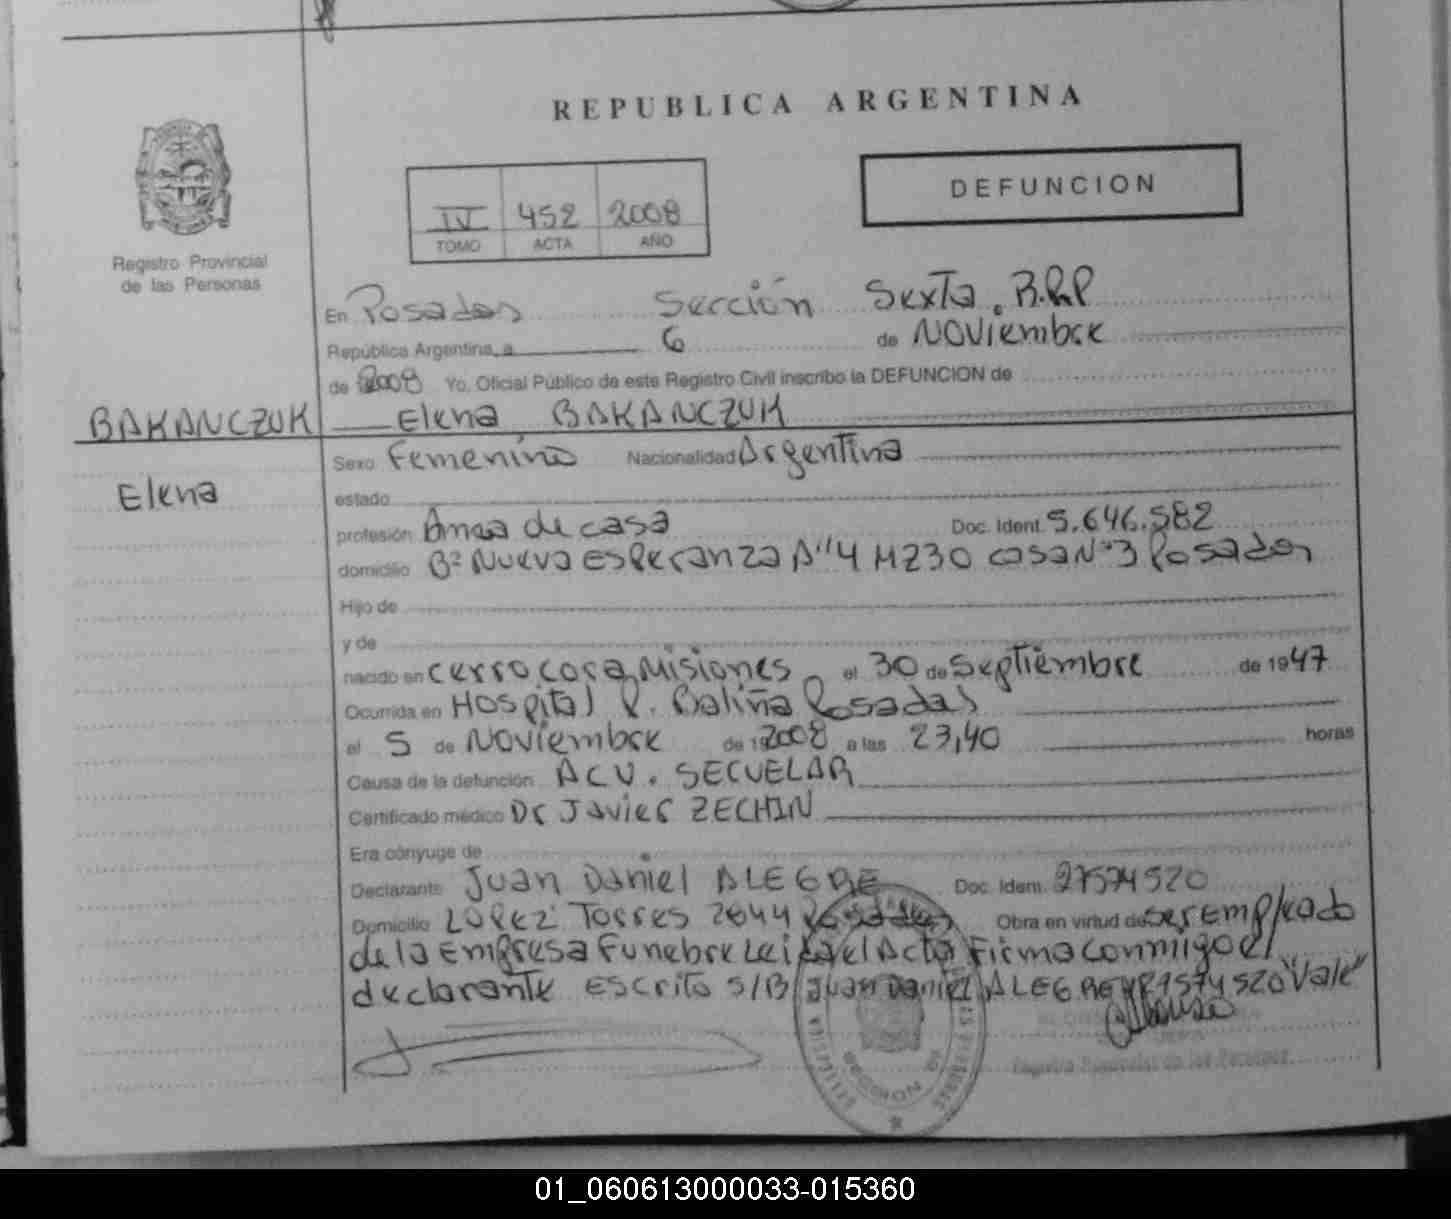 REPUBLICA ARGENTINA
DEFUNCION
IV 452 2008
TOMO ACTA AÑO
Registro Provincial
de las Personas
En Posadas Sección Sexta. R.P.P
República Argentina, a 6 de Noviembre
de 2008 Yo, Oficial Público de este Registro Civil inscribo la DEFUNCION de
BAKANCZUK Elena BAKANCZUK
Elena
Sexo Femenino Nacionalidad Argentina
estado
profesión Amea de casa Doc. Ident. 5.646.582
domicilio Bº Nueva Esperanza A"4 MZ30 casa Nº3 Posadas
Hijo de
y de
nacido en Cerro Cora, Misiones el 30 de Septiembre de 1947
Ocurrida en Hospital R. Baliña Posadas
el 5 de Noviembre de 192008 a las 23,40 horas
Causa de la defunción ACV. SECUELAR
Certificado médico Dr Javier ZECHIN
Era cónyuge de
Declarante Juan Daniel ALEGRE Doc. Ident. 27574520
Domicilio LOPEZ Torres 2844 Posadas Obra en virtud de ser Empleado
de la Empresa Funebre Leida el Acta Firma conmigo el
declarante Escrito S/B Juan Daniel ALEGRE 27574520 "Vale"
Registro Provincial de las Personas
01_060613000033-015360